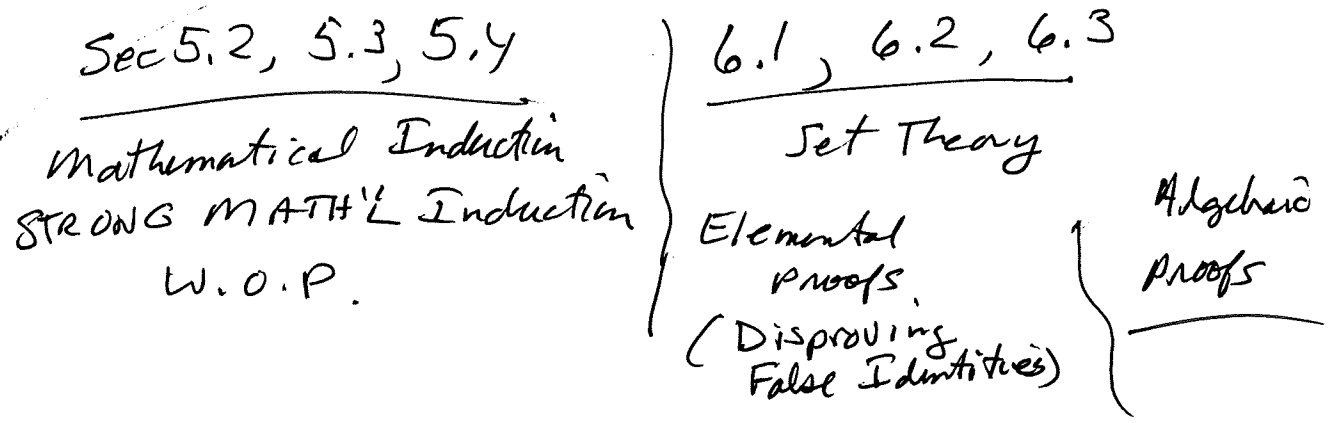 Sec 5.2, 5.3, 5.4
Mathematical Induction
STRONG MATH'L Induction
W.O.P.
6.1, 6.2, 6.3
Set Theory
Elemental
Proofs.
(Disproving
False Identities)
Algebraic
Proofs